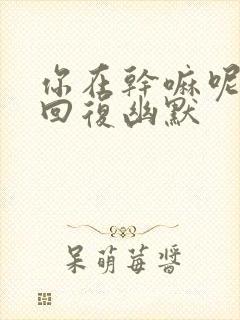 你在幹嘛呢
回復幽默
呆萌莓醬